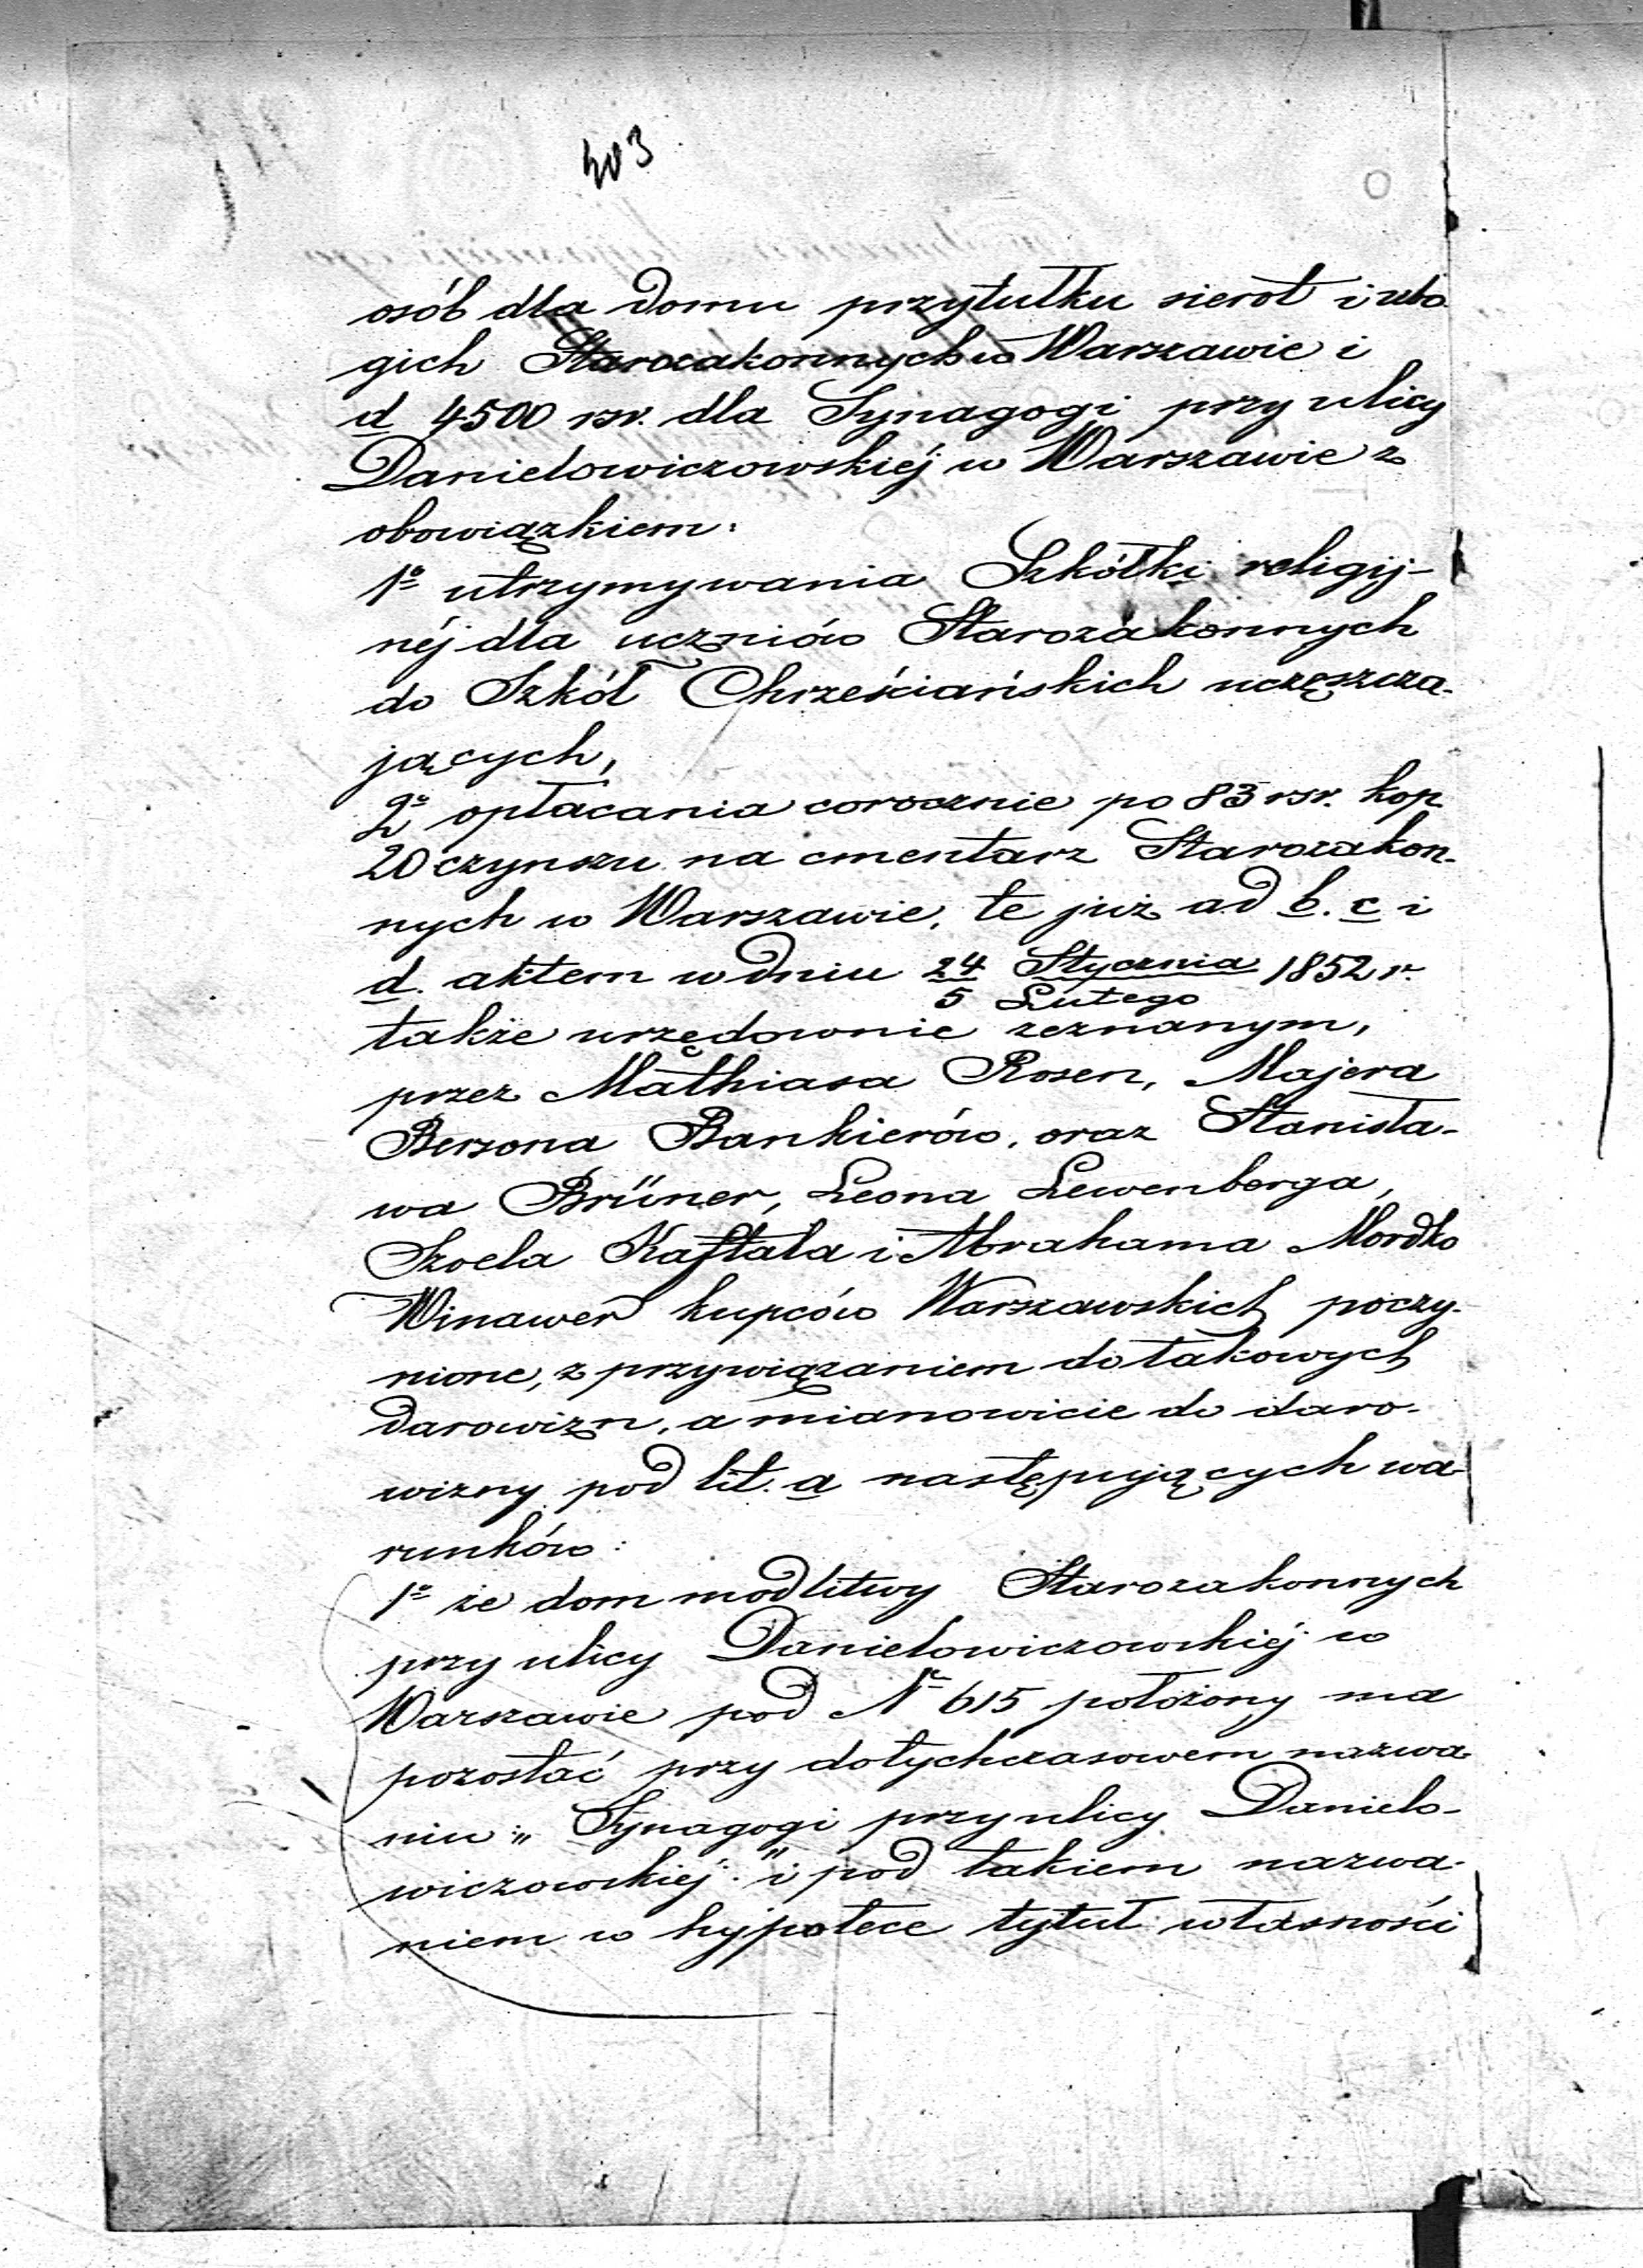 403
osób dla domu przytułku sierot i ubo
gich Starozakonnych w Warszawie i
d 4500 rsr. dla Synagogi przy ulicy
Danielowiczowskiéj w Warszawie z
obowiązkiem:
1º utrzymywania Szkółki religij-
néj dla uczniów Starozakonnych
do Szkół Chrześciańskich uczęszcza-
jących,
2º opłacania corocznie po 83 rsr. kop.
20 czynszu na cmentarz Starozakon-
nych w Warszawie, te już ad b. c i
d. aktem w dniu 24 Stycznia 1852 r.
5 Lutego
także urzędownie zeznanym,
przez Mathiasa Rosen, Majera
Bersona Bankierów, oraz Stanisła-
wa Brüner, Leona Lewenberga,
Szoela Kaftala i Abrahama Mordko
Winawer kupców Warszawskich poczy-
nione, z przywiązaniem do takowych
darowizn, a mianowicie do daro-
wizny pod lit. a następujących wa-
runków:
1º że dom modlitwy Starozakonnych
przy ulicy Danielowiczowskiéj w
Warszawie pod Nº 615 położony ma
pozostać przy dotychczasowem nazwa
niu: „Synagogi przy ulicy Danielo-
wiczowskiéj." i pod takiem nazwa-
niem w hypotece tytuł własności